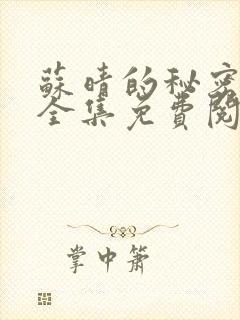 蘇晴的秘密
全集免費閱
掌中簫